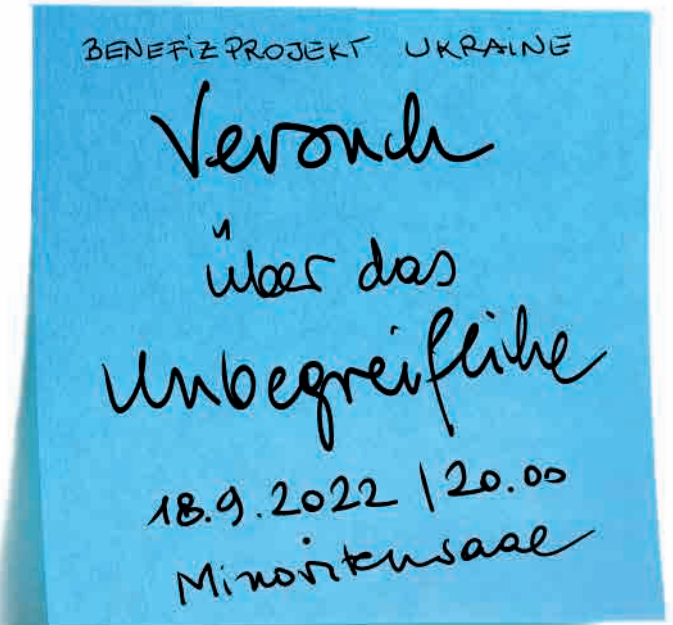 BENEFIZPROJEKT UKRAINE
Versuch
über das
Unbegreifliche
18.9.2022 | 20.00
Minoritensaal